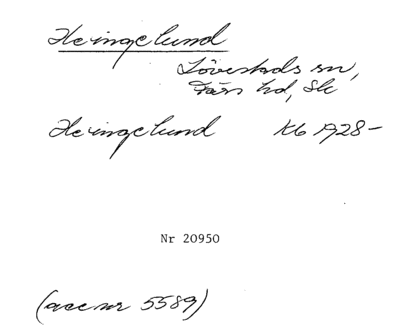 Heingelund
Lövestads sn,
Färs hd, Sk
Heingelund Kb 1928-
Nr 20950
(acc nr 5589)